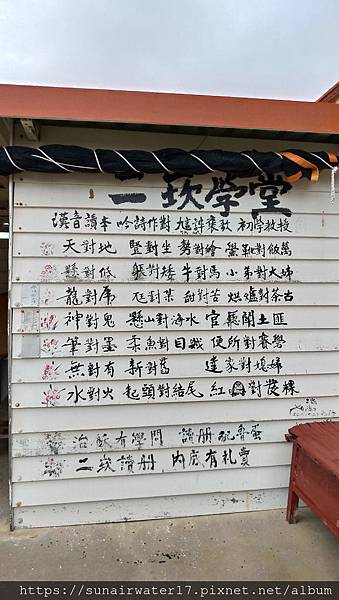 二崁學堂
漢音讀本 吟詩作對 褒歌 初學教授
天對地 豎對坐 對飯萬
懸對低 對矮 牛對馬 小弟對大姊
龍對虎 甜對苦 烘爐對茶古
神對鬼 懸山對海水 官廳對土匪
筆對墨 柔魚對目賊 便所對寮學
無對有 新對舊 達家對媳婦
水對火 起頭對結尾 紅 對茂粿
治 有學問 讀册配魯蛋
二崁讀册 內底有礼賣
https://sunairwater17.pixnet.net/album